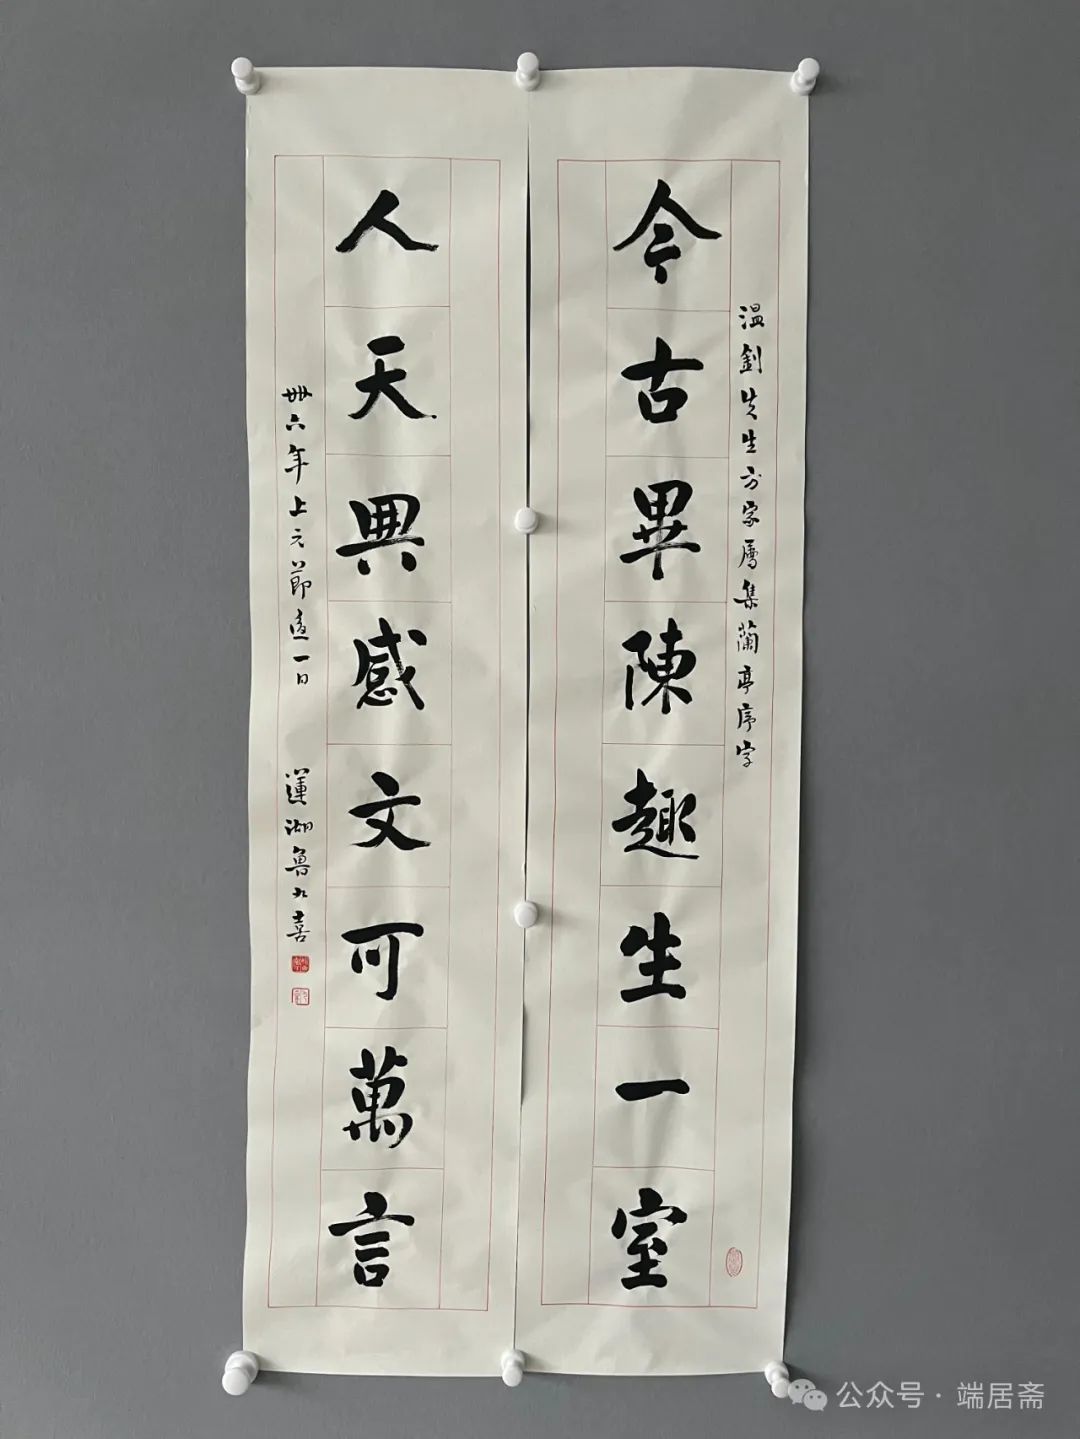 温釗先生方家属集蘭亭序字
今古畢陳趣生一室
人天興感文可萬言
卌六年上元節後一日
蓮湖魯大喜
公众号·端居斋